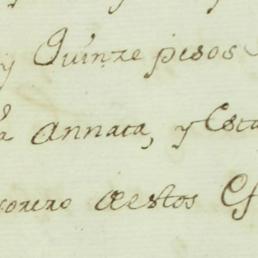 y Quinze pesos
annata, y Esta
sorero aestos